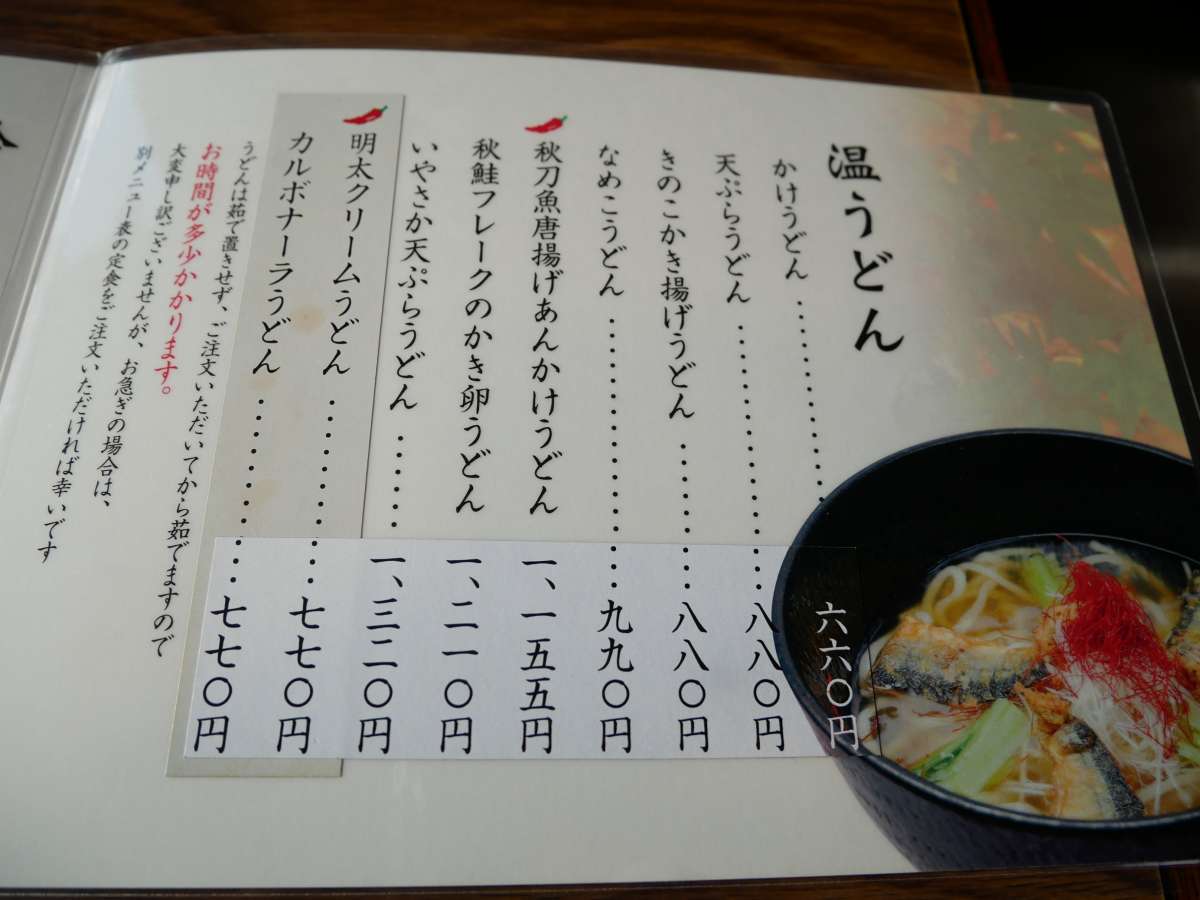 温うどん
かけうどん ・・・・・・・・・・・・ 六六〇円
天ぷらうどん ・・・・・・・・・・・・・・・ 八八〇円
きのこかき揚げうどん ・・・・・・・・・ 八八〇円
なめこうどん ・・・・・・・・・・・・・・・・ 九九〇円
秋刀魚唐揚げあんかけうどん 一、一五五円
秋鮭フレークのかき卵うどん 一、二一〇円
いやさか天ぷらうどん ・・・・・・ 一、三二〇円
明太クリームうどん ・・・・・・・・・・・ 七七〇円
カルボナーラうどん ・・・・・・・・・・・ 七七〇円
うどんは茹で置きせず、ご注文いただいてから茹でますので
お時間が多少かかります。
大変申し訳ございませんが、お急ぎの場合は、
別メニュー表の定食をご注文いただければ幸いです